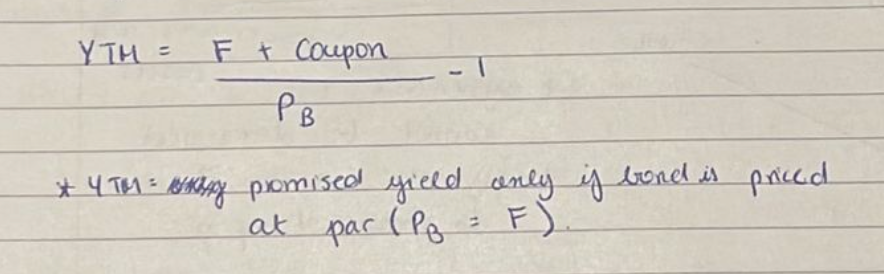 YTM = F + Coupon - 1
P_B
* YTM = promised yield only if bond is priced
at par (P_B = F).